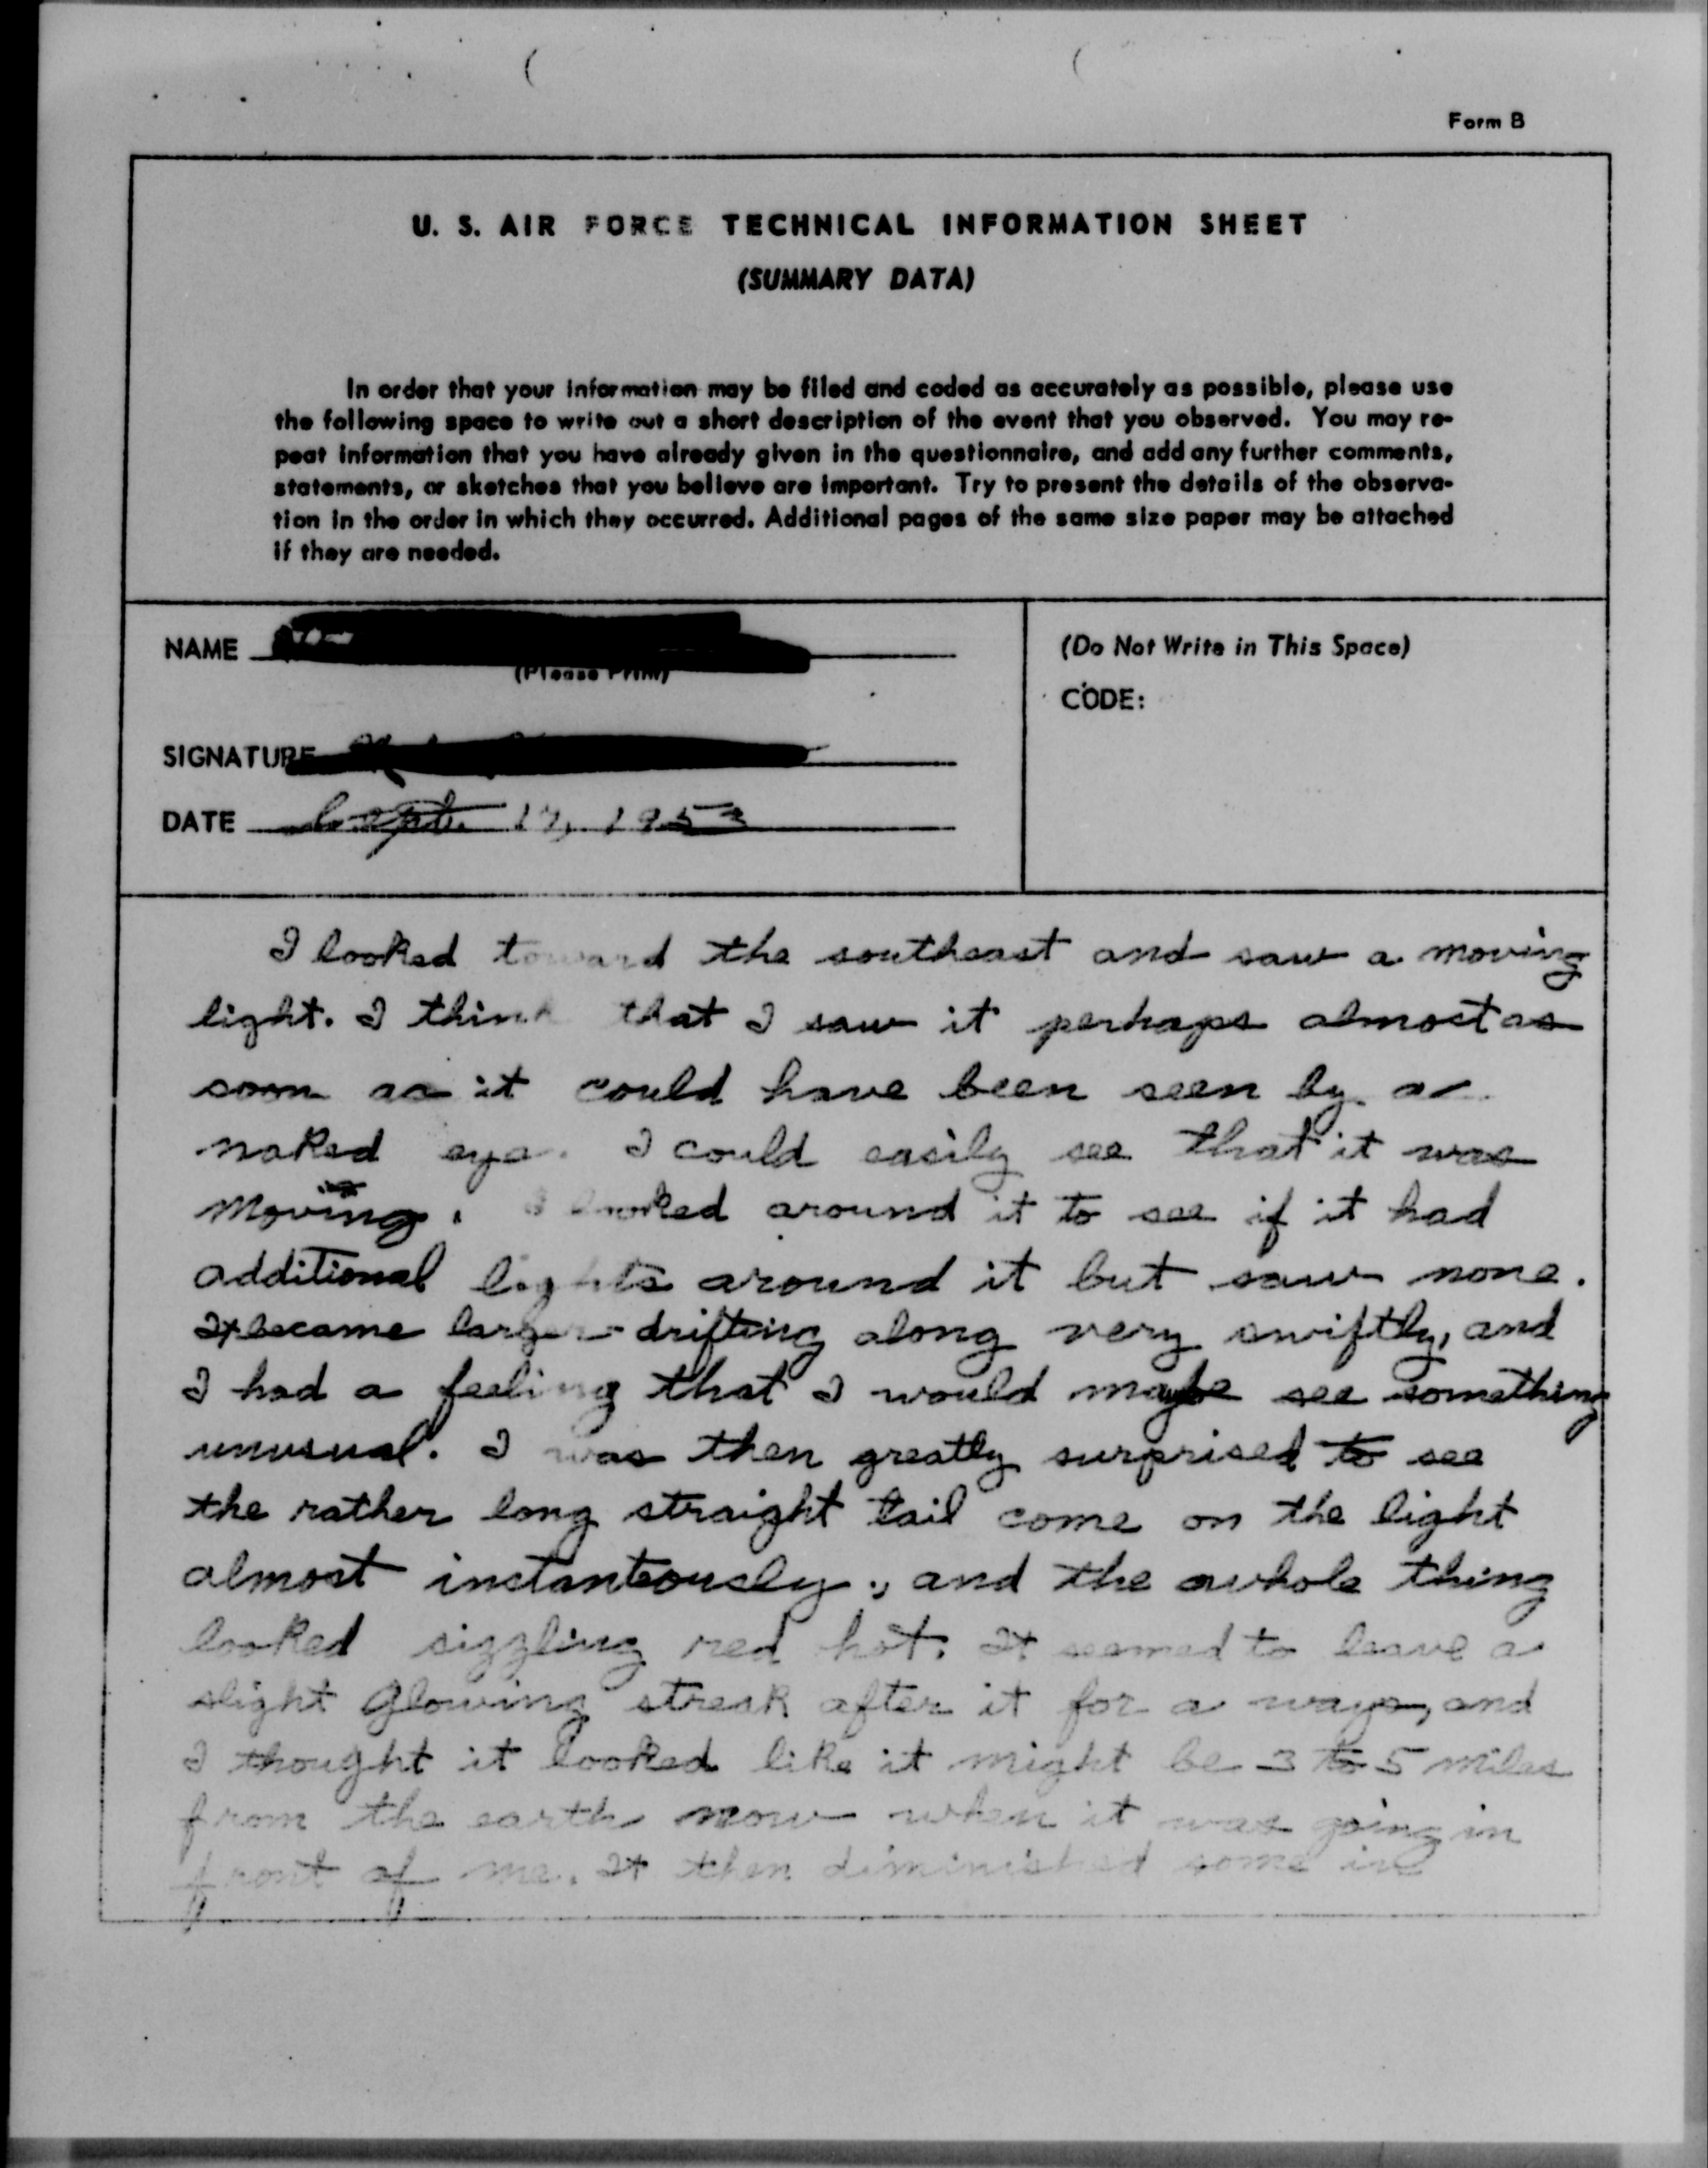 Form B
U. S. AIR FORCE TECHNICAL INFORMATION SHEET
(SUMMARY DATA)
In order that your information may be filed and coded as accurately as possible, please use
the following space to write out a short description of the event that you observed. You may re-
peat information that you have already given in the questionnaire, and add any further comments,
statements, or sketches that you believe are important. Try to present the details of the observa-
tion in the order in which they occurred. Additional pages of the same size paper may be attached
if they are needed.
NAME
(Please Print)
SIGNATURE
DATE Sept. 17, 1953
(Do Not Write in This Space)
CODE:
I looked toward the southeast and saw a moving
light. I think that I saw it perhaps almost as
soon as it could have been seen by a
naked eye. I could easily see that it was
moving. I looked around it to see if it had
additional lights around it but saw none.
It became larger - drifting along very swiftly, and
I had a feeling that I would maybe see something
unusual. I was then greatly surprised to see
the rather long straight tail come on the light
almost instanteously, and the whole thing
looked sizzling red hot. It seemed to leave a
slight glowing streak after it for a ways, and
I thought it looked like it might be 3 to 5 miles
from the earth now when it was going in
front of me. It then diminished some in